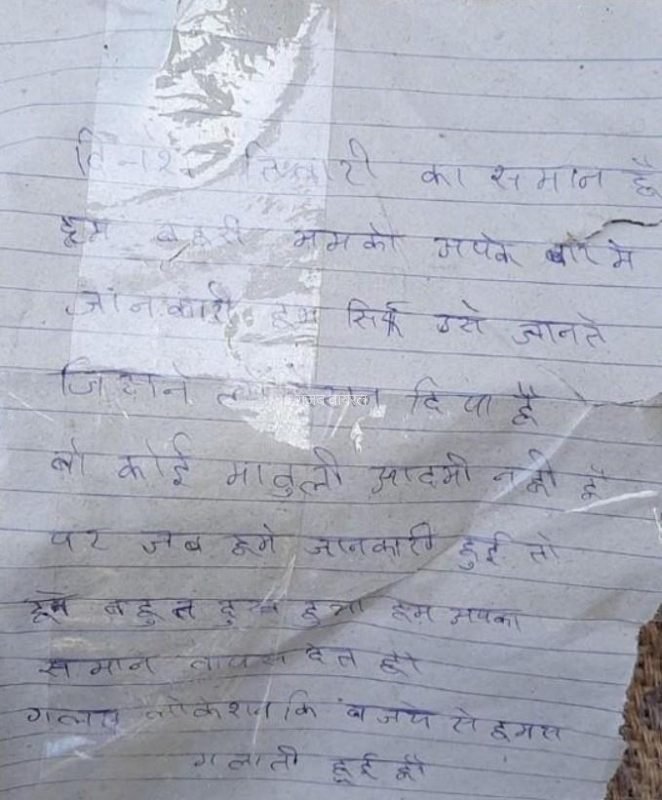 का समान है
हम बहरी हमको अपके बारे मे
जानकारी हम सिर्फ उसे जानते
जिसने दिया है
वो कोई मामुली आदमी नही है
पर जब हमे जानकारी हुई तो
हमे बहुत दुख हुआ हम अपका
समान वापस देत है
गलत लोकेशन कि वजये से हमसे
गलाती हुई है